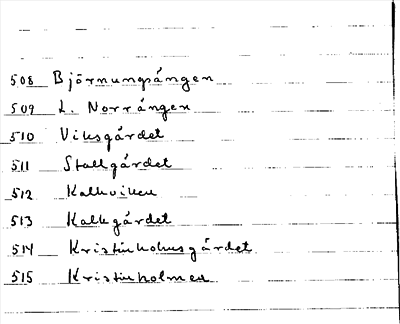 508 Björnungsängen
509 L. Norrängen
510 Viksgärdet
511 Stallgärdet
512 Kalkviken
513 Kalkgärdet
514 Kristinhohusgärdet
515 Kristinholmen